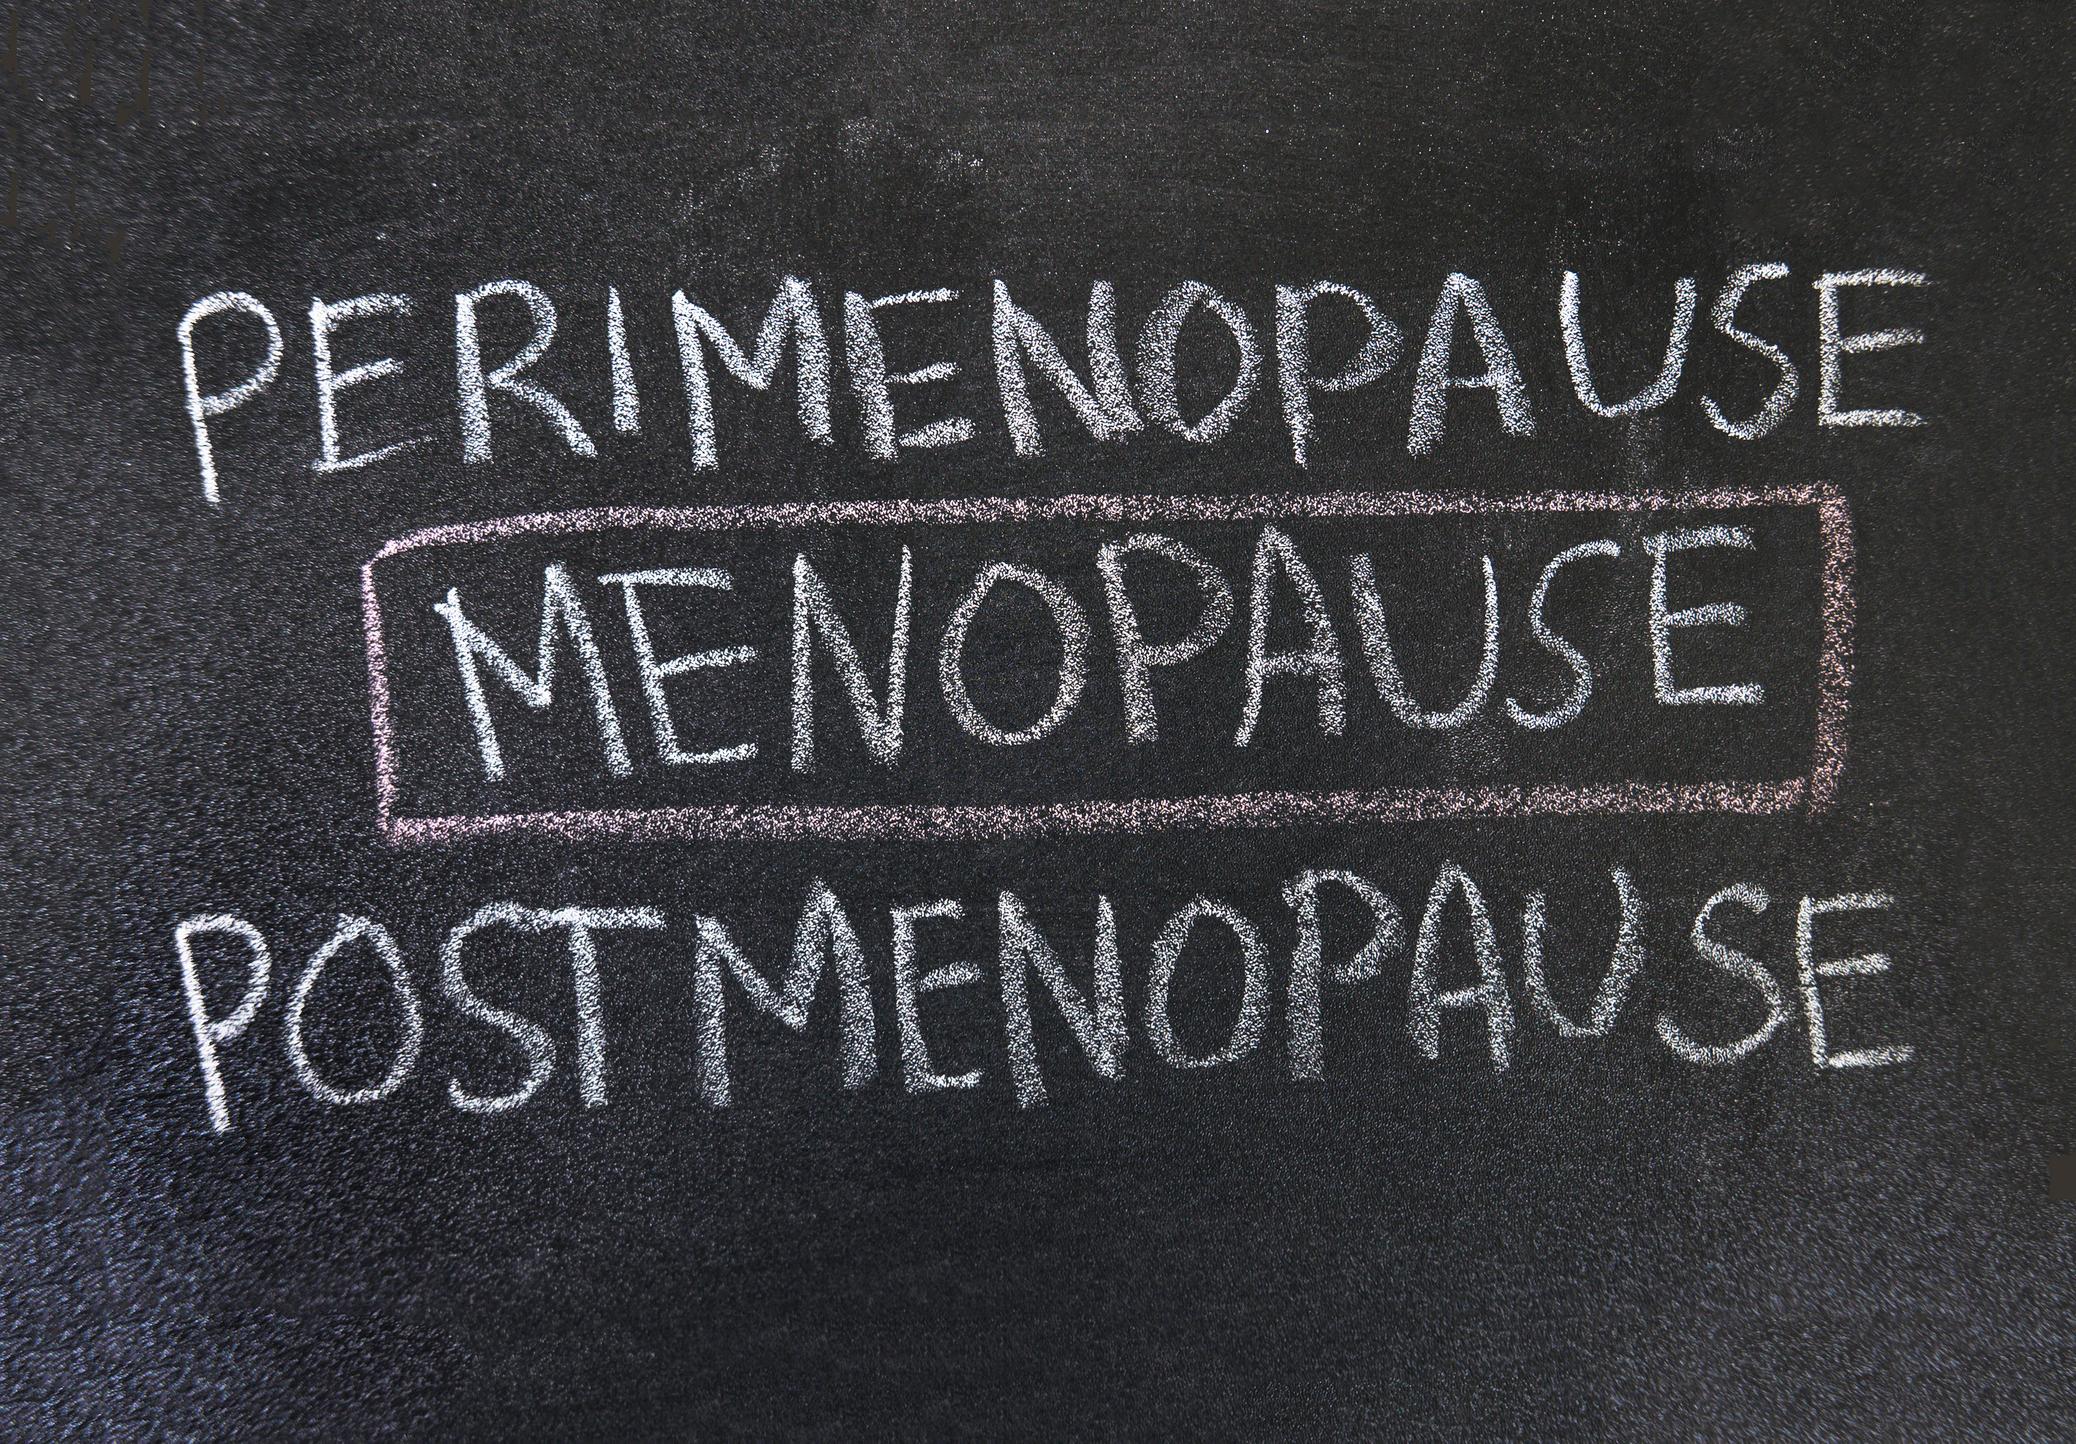 PERIMENOPAUSE
MENOPAUSE
POSTMENOPAUSE